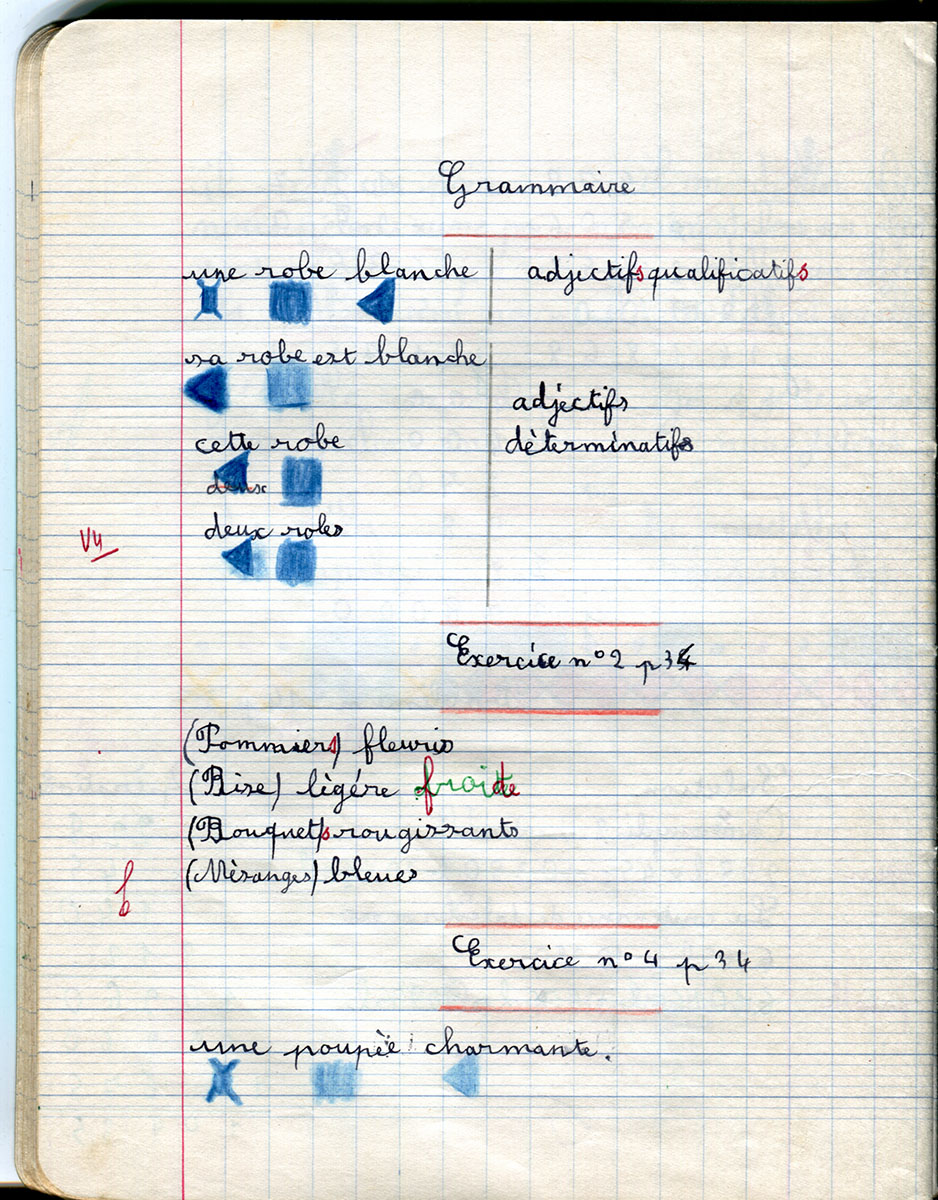 Grammaire
une robe blanche
adjectifs qualificatifs
sa robe est blanche
adjectifs
dèterminatifs
cette robe
deux
deux robes
Exercice n° 2 p 34
(Pommiers) fleuris
(Bise) lègére froide
(Bouquets) rougissants
(Mèsanges) bleues
Exercice n° 4 p 34
une poupèe charmante.